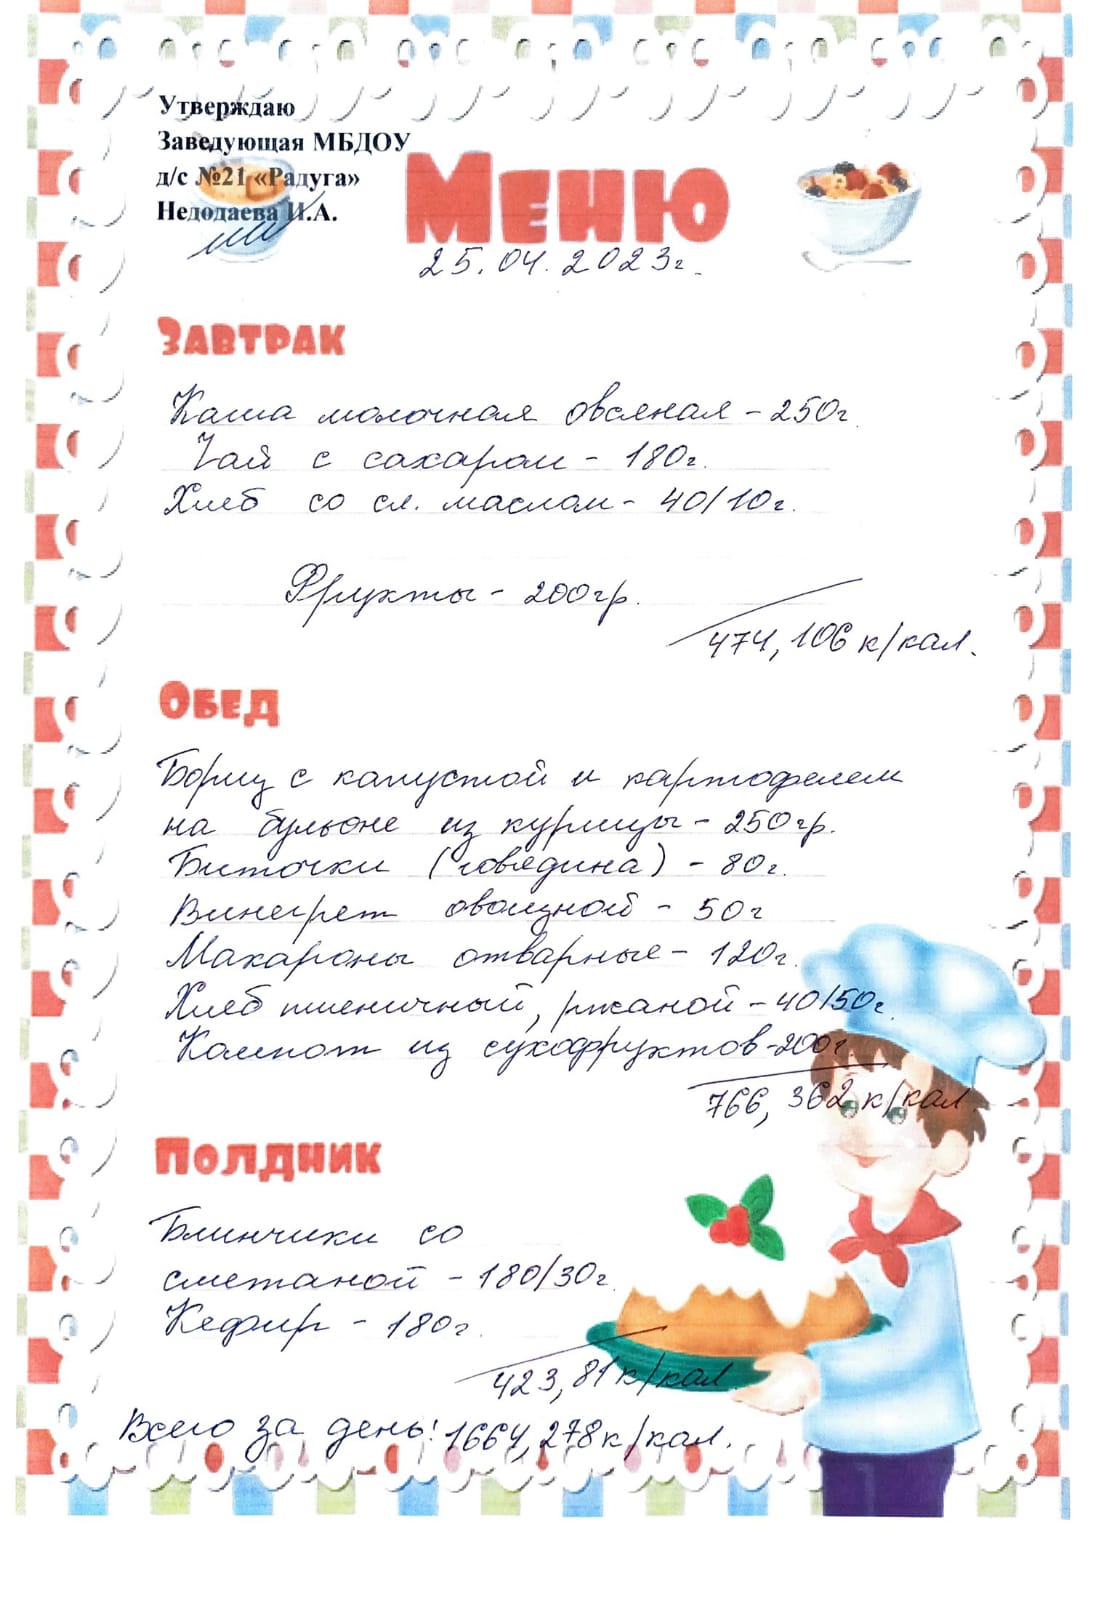 Утверждаю
Заведующая МБДОУ
д/с №21 «Радуга»
Недодаева И.А.
Меню
25.04.2023г.
Завтрак
Каша молочная овсяная - 250г.
Чай с сахаром - 180г.
Хлеб со сл. маслом - 40/10г.
Фрукты - 200гр.
474,106 к/кал.
Обед
Борщ с капустой и картофелем
на бульоне из курицы - 250гр.
Биточки (говядина) - 80г.
Винегрет овощной - 50г
Макароны отварные - 120г.
Хлеб пшеничный, ржаной - 40/50г.
Компот из сухофруктов - 200г.
766,362 к/кал.
Полдник
Блинчики со
сметаной - 180/30г.
Кефир - 180г.
423,81 к/кал
Всего за день: 1664,278 к/кал.